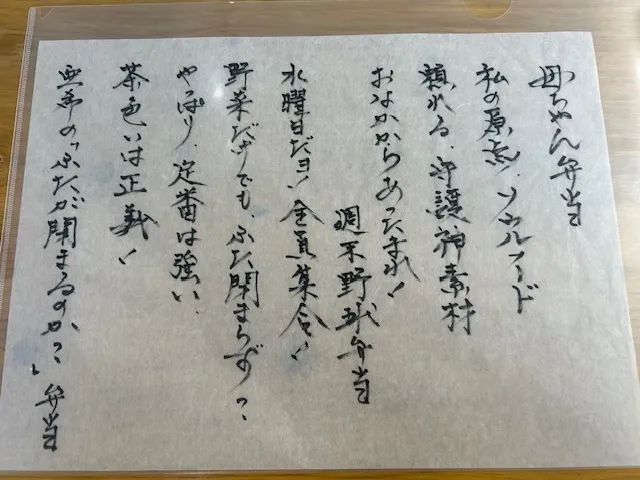 母ちゃん弁当
私の原点、ソウルフード
頼れる、守護神素材
おなかからあったまれ！
週末野球弁当
水曜日だョ！全員集合！
野菜だけでも、ふた閉まらず？
やっぱり、定番は強い、
茶色いは正義！
恵希の「ふたが閉まるのか？」弁当